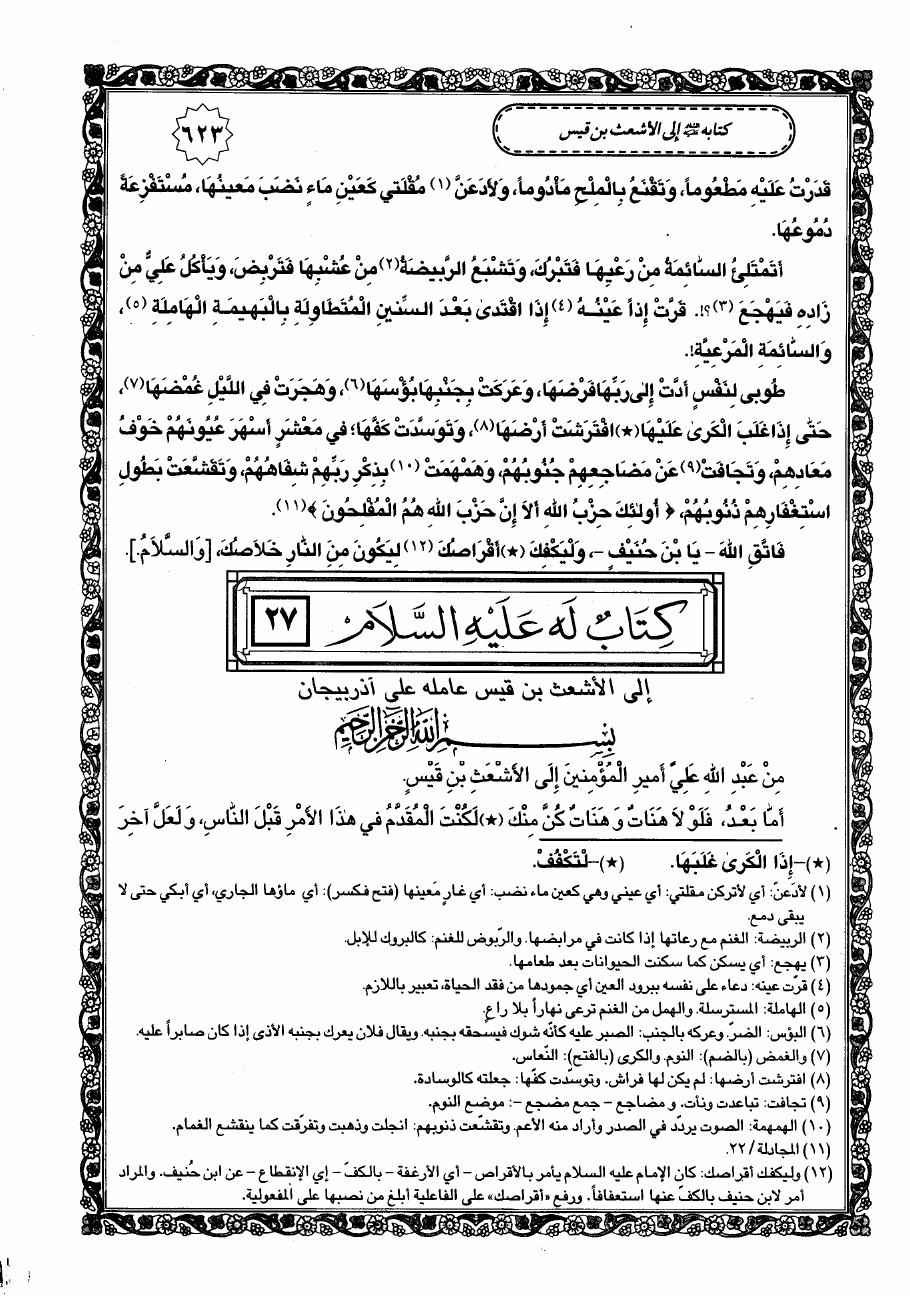 كتابه ﷺ إلى الأشعث بن قيس
٦٢٣
قَدَرْتُ عَلَيْهِ مَطْعُوماً، وَتَقْنَعُ بِالْمِلْحِ مَأْدُوماً، وَلأَدَعَنَّ (١) مُقْلَتي كَعَيْنِ مَاءٍ نَضَبَ مَعينُهَا، مُسْتَفْرِغَةً
دُمُوعُهَا.
أَتَمْتَلِئُ السَّائِمَةُ مِنْ رَعْيِهَا فَتَبْرُكَ، وَتَشْبَعُ الرَّبيضَةُ(٢)مِنْ عُشْبِهَا فَتَرْبِضَ، وَيَأْكُلُ عَلِيٌّ مِنْ
زَادِهِ فَيَهْجَعَ (٣)؟!. قَرَّتْ إِذاً عَيْنُهُ (٤)إِذَا اقْتَدىٰ بَعْدَ السِّنينِ الْمُتَطَاوِلَةِ بِالْبَهيمَةِ الْهَامِلَةِ (٥)،
وَالسَّائِمَةِ الْمَرْعِيَّةِ!.
طُوبى لِنَفْسٍ أَدَّتْ إِلى رَبِّهَا فَرْضَهَا، وَعَرَكَتْ بِجَنْبِهَا بُؤْسَهَا(٦)، وَهَجَرَتْ فِي اللَّيْلِ غُمْضَهَا(٧)،
حَتّى إِذَا غَلَبَ الْكَرىٰ عَلَيْهَا(★)افْتَرَشَتْ أَرْضَهَا(٨)، وَتَوَسَّدَتْ كَفَّهَا؛ في مَعْشَرٍ أَسْهَرَ عُيُونَهُمْ خَوْفُ
مَعَادِهِمْ، وَتَجَافَتْ(٩)عَنْ مَضَاجِعِهِمْ جُنُوبُهُمْ، وَهَمْهَمَتْ (١٠)بِذِكْرِ رَبِّهِمْ شِفَاهُهُمْ، وَتَقَشَّعَتْ بِطُولِ
اسْتِغْفَارِهِمْ ذُنُوبُهُمْ، ﴿ أُولٰئِكَ حِزْبُ اللهِ أَلاَ إِنَّ حِزْبَ اللهِ هُمُ الْمُفْلِحُونَ ﴾(١١).
فَاتَّقِ اللهَ - يَا بْنَ حُنَيْفٍ -، وَلْيَكْفِكَ (★)أَقْرَاصُكَ (١٢)لِيَكُونَ مِنَ النَّارِ خَلاَصُكَ، [وَالسَّلاَمُ.].
كِتَابٌ لَه عَلَيْهِ السَّلاَمْ ٢٧
إلى الأشعث بن قيس عامله على آذربيجان
بسم الله الرحمن الرحيم
مِنْ عَبْدِ اللهِ عَلِيٍّ أَميرِ الْمُؤْمِنينَ إِلَى الأَشْعَثِ بْنِ قَيْسٍ.
أَمَّا بَعْدُ، فَلَوْلاَ هَنَاتٌ وَهَنَاتٌ كُنَّ مِنْكَ (★)لَكُنْتَ الْمُقَدَّمُ في هٰذَا الأَمْرِ قَبْلَ النَّاسِ، وَلَعَلَّ آخِرَ
(★)-إِذَا الْكَرىٰ غَلَبَهَا. (★)-لَتَكْفُفْ.
(١) لأدعنّ: أي لأتركن مقلتي: أي عيني وهي كعين ماء نضب: أي غار مَعينها (فتح فكسر): أي ماؤها الجاري، أي أبكي حتى لا
يبقى دمع.
(٢) الربيضة: الغنم مع رعاتها إذا كانت في مرابضها. والرّبوض للغنم: كالبروك للإبل.
(٣) يهجع: أي يسكن كما سكنت الحيوانات بعد طعامها.
(٤) قرّت عينه: دعاء على نفسه ببرود العين أي جمودها من فقد الحياة، تعبير باللازم.
(٥) الهاملة: المسترسلة. والهمل من الغنم ترعى نهاراً بلا راعٍ.
(٦) البؤس: الضرّ. وعركه بالجنب: الصبر عليه كأنّه شوك فيسحقه بجنبه. ويقال فلان يعرك بجنبه الأذى إذا كان صابراً عليه.
(٧) والغمض (بالضم): النوم. والكرى (بالفتح): النّعاس.
(٨) افترشت أرضها: لم يكن لها فراش. وتوسّدت كفّها: جعلته كالوسادة.
(٩) تجافت: تباعدت ونأت. و مضاجع - جمع مضجع -: موضع النوم.
(١٠) الهمهمة: الصوت يردّد في الصدر وأراد منه الأعم. وتقشّعت ذنوبهم: انجلت وذهبت وتفرّقت كما ينقشع الغمام.
(١١) المجادلة / ٢٢.
(١٢) وليكفك أقراصك: كان الإمام عليه السلام يأمر بالأقراص - أي الأرغفة - بالكفّ - إي الإنقطاع - عن ابن حُنيف. والمراد
أمر لابن حنيف بالكفّ عنها استعفافاً. ورفع «أقراصك» على الفاعلية أبلغ من نصبها على المفعولية.